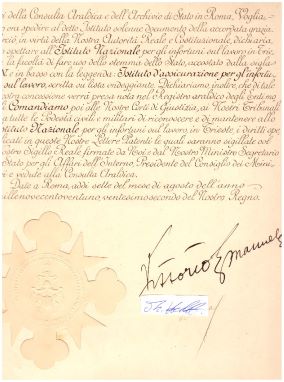 e della Consulta Araldica e dell'Archivio di Stato in Roma. Voglia=
ora spedire al detto Istituto solenne documento della accordata grazia
ciò, in virtù della Nostra Autorità Reale e Costituzionale, dichiaria=
spettare all'Istituto Nazionale per gli infortuni sul lavoro, in Trie=
la facoltà di fare uso dello stemma dello Stato, accostato dalla sigla
X e in basso con la leggenda: Istituto d'assicurazione per gl'infortu=
sul lavoro, scritta su lista svolazzante. Dichiariamo, inoltre, che di tale
concessione verrà presa nota nel Registro araldico degli
Comandiamo poi alle Nostre Corti di Giustizia, ai Nostri Tribunali
a tutte le Podestà civili e militari di riconoscere e di mantenere allo
stituto Nazionale per gli infortuni sul lavoro, in Trieste, i diritti spe=
cificati in queste Nostre Lettere Patenti le quali saranno sigillate col
nostro Sigillo Reale firmate da Noi e dal Nostro Ministro Segretario
Stato per gli Affari dell'Interno, Presidente del Consiglio dei Mini=
e vedute alla Consulta Araldica.
Dato a Roma, addì sette del mese di agosto dell'anno
millenovecentoventuno ventesimosecondo del Nostro Regno.
Vittorio Emanuele